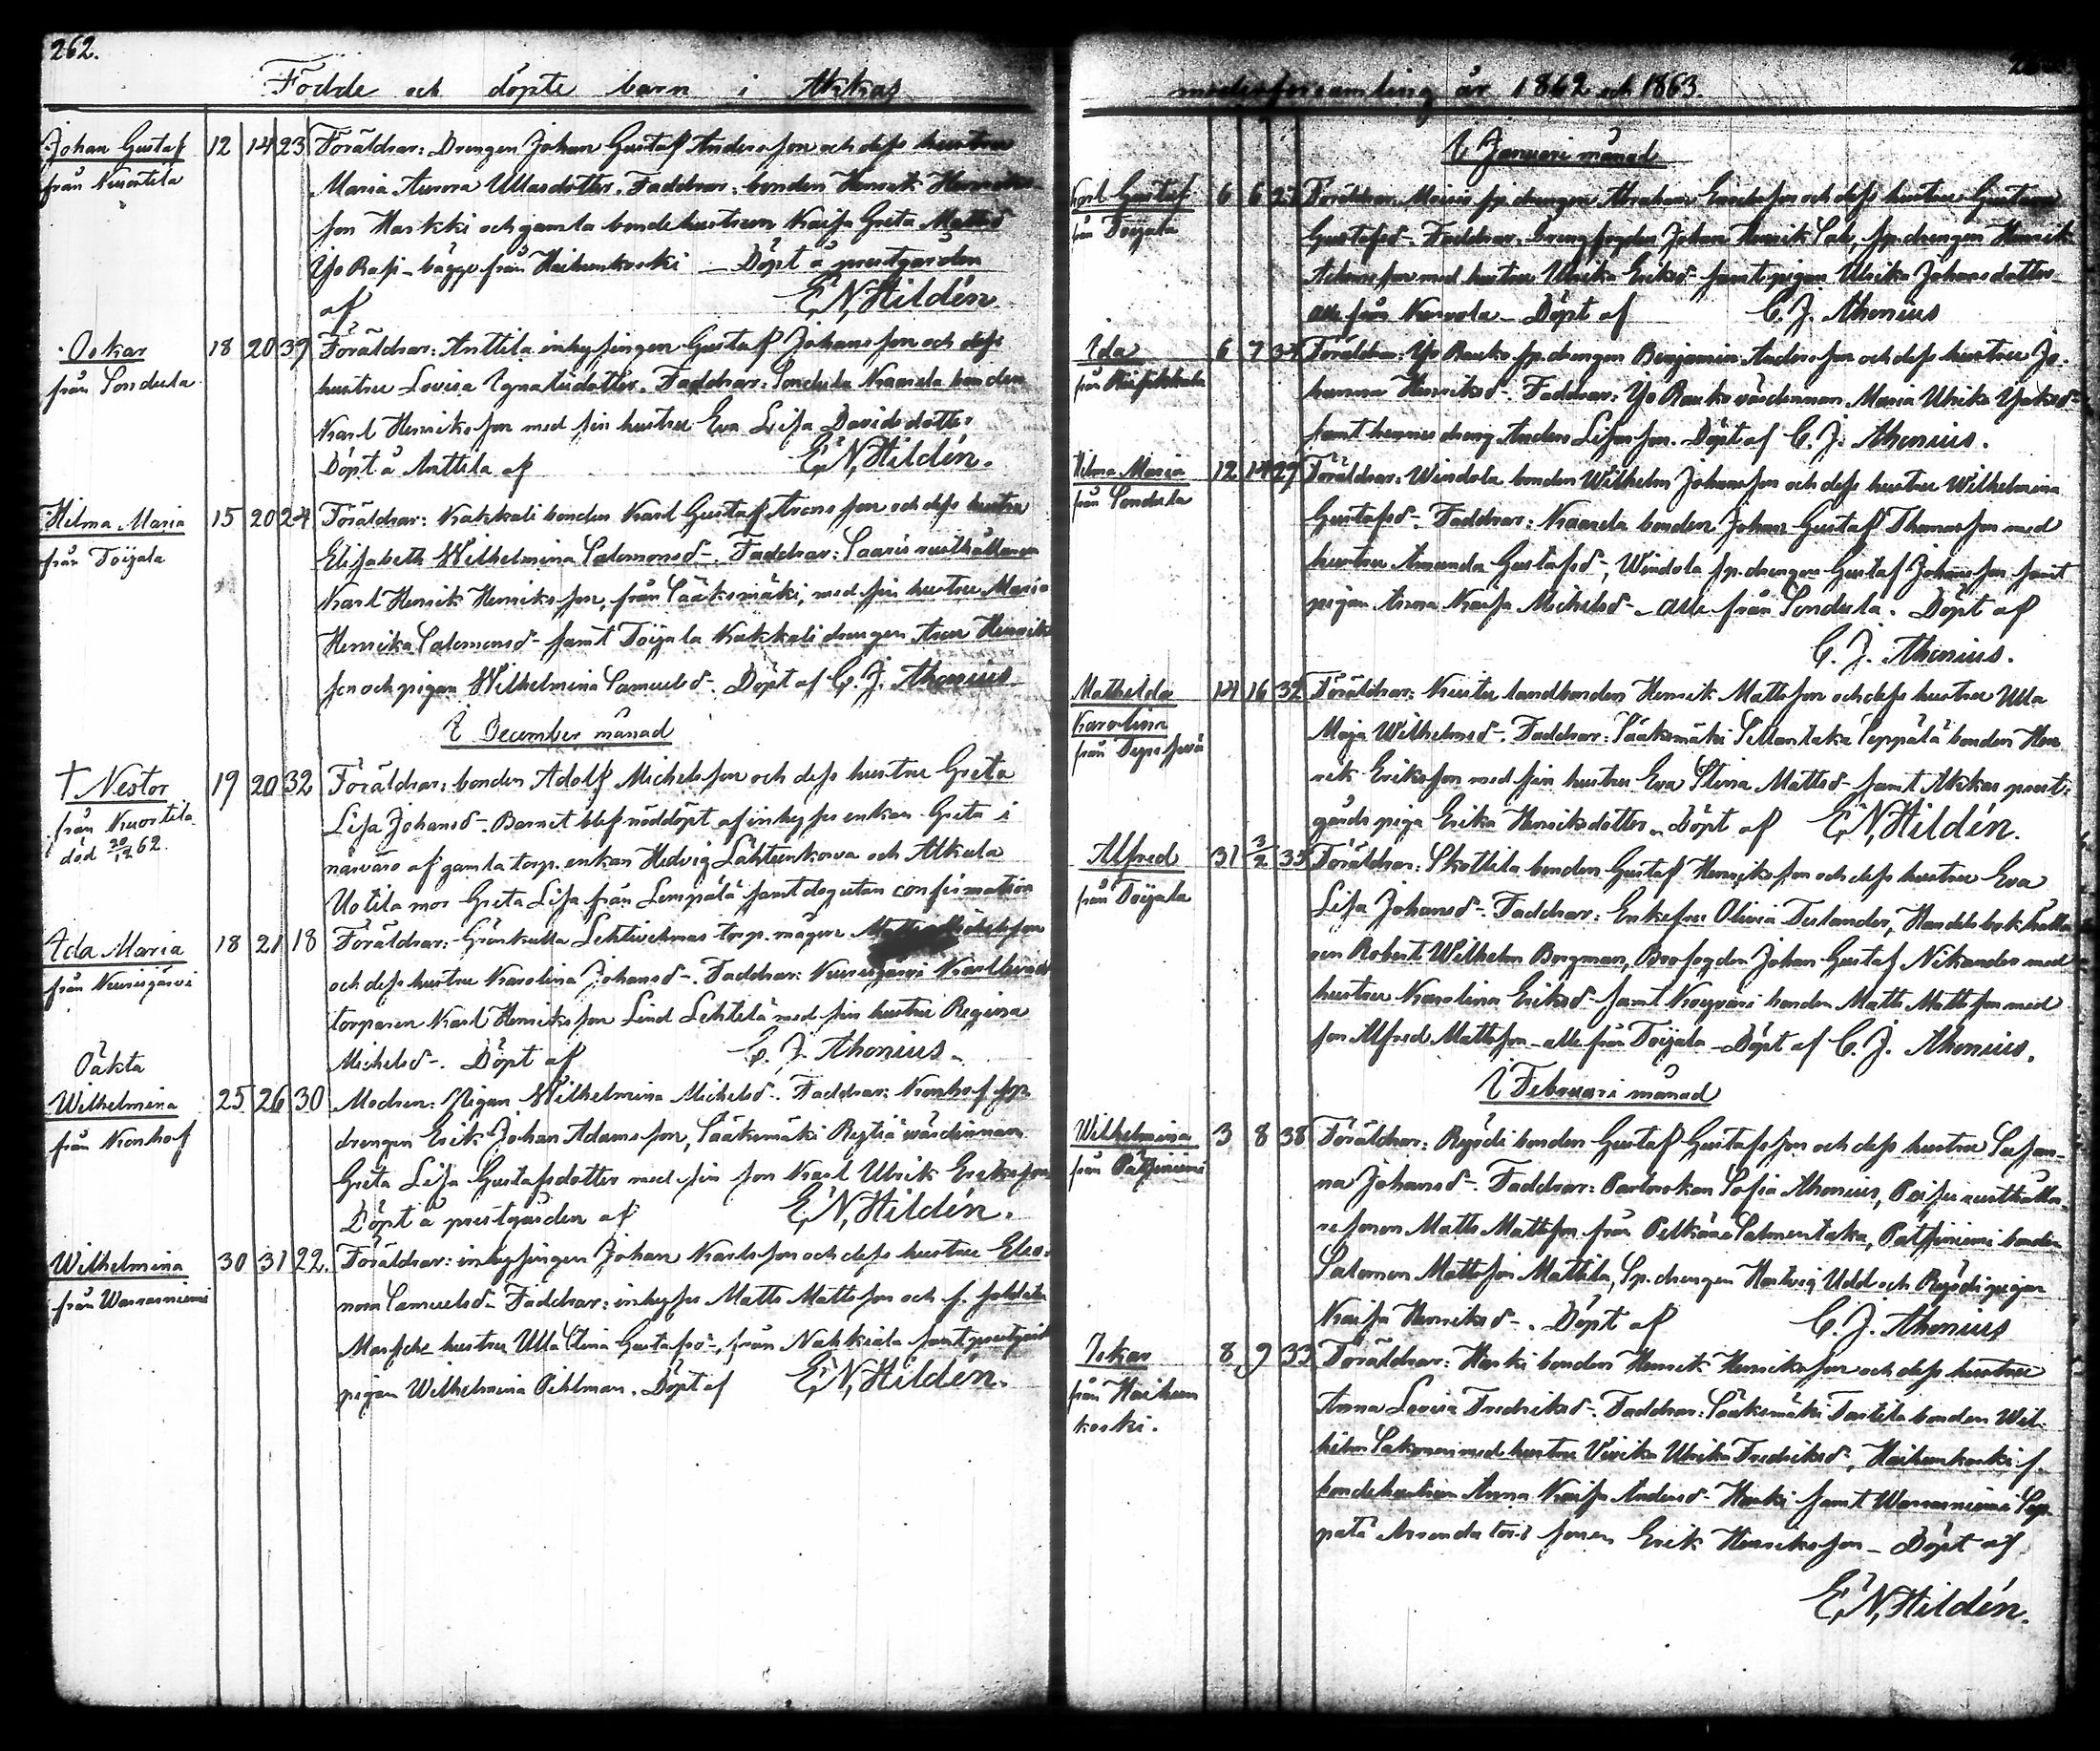 262.
Födde och döpte barn i Akkas
Johan Gustaf 12 14 23 Föräldrar: Drengen Johan Gustaf Andersson och dess hustru
från Kuortila Maria Aurora Ullasdotter. Faddrar: bonden Henrik Henriks
son Harkki och gamla bondehustrun Kaisa Greta Matts
Yso Rasi - bägge från Haihunkoski - Döpt å prestgården
af E. N. Hildén.
Oskar 18 20 39 Föräldrar: Anttila inhysingen Gustaf Johansson och dess
från Sondula hustru Lovisa Ignatiidotter. Faddrar: Sondula Knaarla bonden
Karl Henriksson med sin hustru Eva Lisa Davidsdotter
Döpt å Anttila af E. N. Hildén.
Hilma Maria 15 20 24 Föräldrar: Kakkali bonden Karl Gustaf Aronsson och dess hustru
från Toijala Elisabeth Wilhelmina Salomonsd-. Faddrar: Saaris rusthållaren
Karl Henrik Henriksson, från Sääksmäki, med sin hustru Maria
Henrika Salomonsd- samt Toijala Kakkali drengen Henriks
son och pigan Wilhelmina Samuelsd-. Döpt af C. J. Ahonius
I December månad
† Nestor 19 20 32 Föräldrar: bonden Adolf Michelsson och dess hustru Greta
från Kuortila Lisa Johansd-. Barnet blef nöddöpt af inhyses enkan Greta i
död 20/12 62. närvaro af gamla torp. enkan Hedvig Lähteenkorva och Alkula
Uotila mor Greta Lisa från Lempälä samt dogutan confirmation
Ida Maria 18 21 18 Föräldrar: Gränkulla torp. mågen Michelsson
från Kurisjärvi och dess hustru Karolina Johansd-. Faddrar: Kurisjärvi
torparen Karl Henriksson Lind Lehtelä med sin hustru Regina
Michelsd-. Döpt af C. J. Ahonius.
Oäkta
Wilhelmina 25 26 30 Modren: Pigan Wilhelmina Michelsd-. Faddrar: Kronhof sp.
från Kronhof drengen Erik Johan Adamsson, Sääksmäki värdinnan
Greta Lisa Gustafsdotter med sin son Karl Ulrik Eriksson
Döpt å prestgården af E. N. Hildén.
Wilhelmina 30 31 22. Föräldrar: inhysingen Johan Karlsson och dess hustru Eleo-
från Warrasniemi nora Samuelsd- Faddrar: inhyses Matts Mattsson och f. soldaten
hustru Ulla Stina Gustafsd-, från Nahkiala samt prestgårds
pigan Wilhelmina Pihlman. Döpt af E. N. Hildén.
modersförsamling år 1862 och 1863.
I Januari månad
Karl Gustaf 6 6 Föräldrar: sp. drengen Abraham och dess hustru Gustava
från Toijala Gustafsd-. Faddrar: Drengfogden Johan Henrik sp. drengen Henrik
Adamsson med hustru Ulrika Eriksd- samt pigan Ulrika Johansdotter
alla från Kurvola - Döpt af C. J. Ahonius
Ida 6 7 34 Föräldrar: Yso Rauko sp. drengen Benjamin Andersson och dess hustru Jo-
hanna Henriksd-. Faddrar: Yso Rauko värdinnan Maria Ulrika
samt hennes dreng Anders . Döpt af C. J. Ahonius.
Hilma Maria 12 14 27 Föräldrar: Windola bonden Wilhelm Johansson och dess hustru Wilhelmina
från Sondula Gustafsd-. Faddrar: Knaarla bonden Johan Gustaf Thomasson med
hustru Amanda Gustafsd-, Windola sp. drengen Gustaf Johansson samt
pigan Anna Kaisa Michelsd- - alla från Sondula. Döpt af
C. J. Ahonius.
Mathilda 14 16 32 Föräldrar: Kurtu landbonden Henrik Mattsson och dess hustru Ulla
Karolina Maja Wilhelmsd-. Faddrar: Sääksmäki Seppälä bonden Hen-
från rik Eriksson med sin hustru Eva Stina Mattsd- samt Akkas prest-
gårds piga Erika Henriksdotter. Döpt af E. N. Hildén.
Alfred 31 3/2 35 Föräldrar: Skottila bonden Gustaf Henriksson och dess hustru Eva
från Toijala Lisa Johansd-. Faddrar: Enkefru Olivia Tulander, Handels bokhålla-
ren Robert Wilhelm Borgman, Brofogden Johan Gustaf Nikander med
hustru Karolina Eriksd- samt bonden Matts Mattsson med
son Alfred Mattsson - alla från Toijala - Döpt af C. J. Ahonius.
I Februari månad
Wilhelmina 3 8 38 Föräldrar: Ryödi bonden Gustaf Gustafsson och dess hustru Susan-
från Pätsiniemi na Johansd-. Faddrar: Pastorskan Sofia Ahonius, rusthålla-
resonen Matts Mattsson från Pelkäne Salmentaka, Pätsiniemi bonden
Salomon Mattsson Mattila, Sp. drengen Hartvig Udd och Ryödi pigan
Kaisa Henriksd-. Döpt af C. J. Ahonius
Iskar 8 9 33 Föräldrar: Harki bonden Henrik Henriksson och dess hustru
från Haihun Anna Lovisa Fredriksd-. Faddrar: Sääksmäki bonden Wil-
koski. helm med hustru Ulrika Fredriksd-, Haihunkoski f.
bondehustrun Anna Kaisa Andersd- Harki samt Warrasniemi Sep-
pälä Arrendators sonen Erik Henriksson - Döpt af
E. N. Hildén.